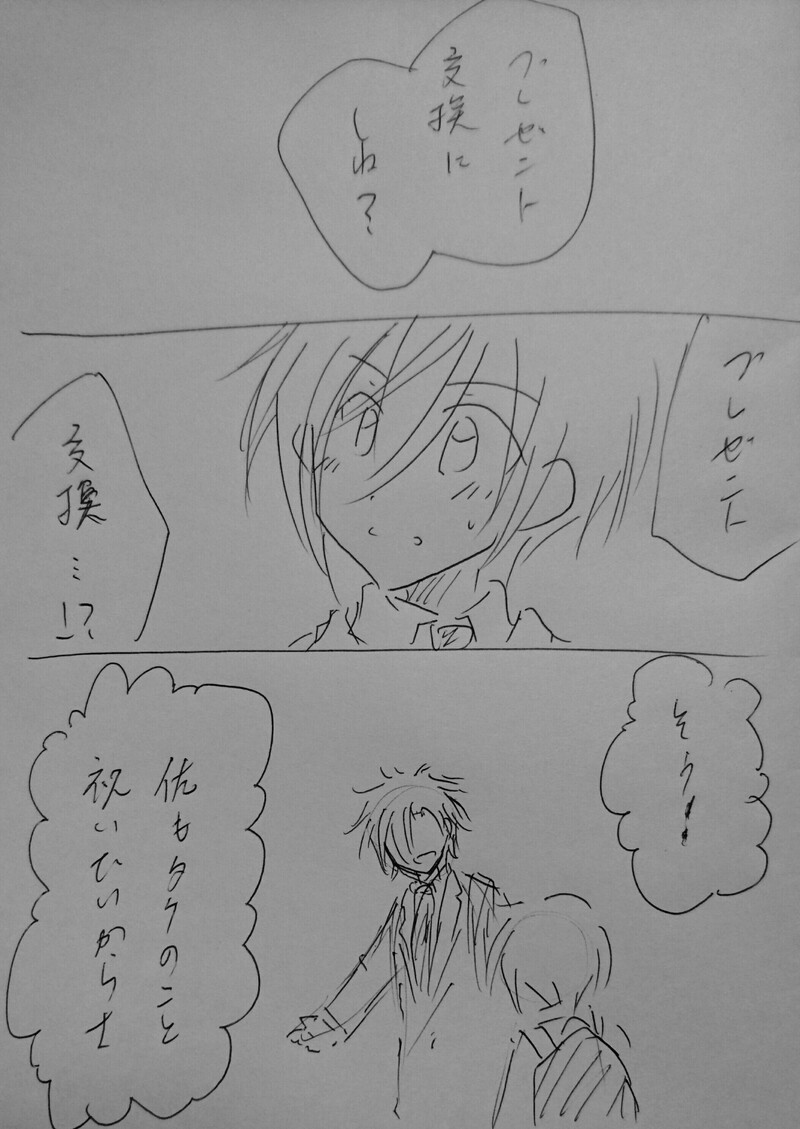 プレゼント
交換に
しね？
プレゼント
交換…!?
そう！
俺もタケのこと
祝いたいからさ